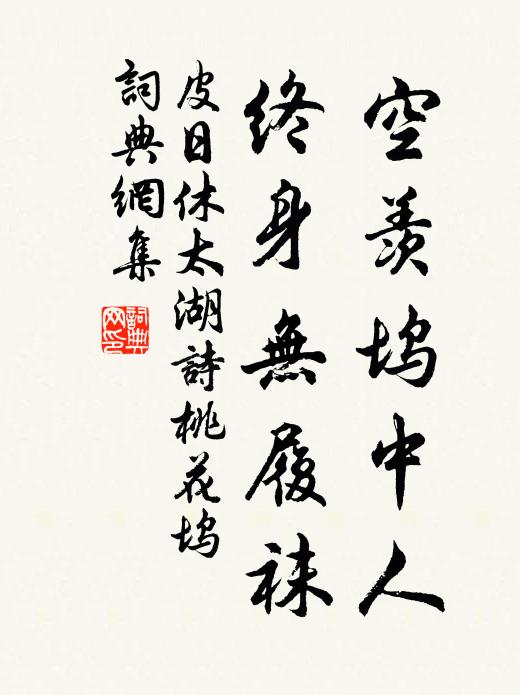 空羨塢中人
終身無履袜
皮日休太湖詩桃花塢
詞典網集
詞典
网印